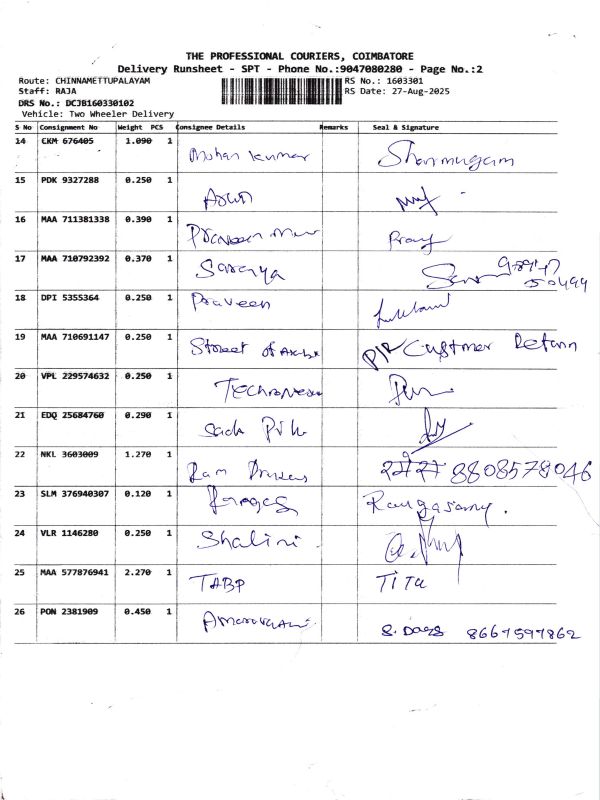 THE PROFESSIONAL COURIERS, COIMBATORE
Delivery Runsheet - SPT - Phone No.:9047080280 - Page No.:2
Route: CHINNAMETTUPALAYAM RS No.: 1603301
Staff: RAJA RS Date: 27-Aug-2025
DRS No.: DCJB160330102
Vehicle: Two Wheeler Delivery
S No Consignment No Weight PCS Consignee Details Remarks Seal & Signature
14 CKM 676405 1.090 1
Mohan Kumar Shanmugam
15 PDK 9327288 0.250 1
Arun
16 MAA 711381338 0.390 1
Praveen
17 MAA 710792392 0.370 1
Saranya
18 DPI 5355364 0.250 1
Praveen
19 MAA 710691147 0.250 1
Street of P/R Customer Return
20 VPL 229574632 0.250 1
21 EDQ 25684760 0.290 1
Pvt
22 NKL 3603009 1.270 1
Ram 8808578046
23 SLM 376940307 0.120 1
Rangasamy.
24 VLR 1146280 0.250 1
Shalini
25 MAA 577876941 2.270 1
TABP
26 PON 2381909 0.450 1
8667597862